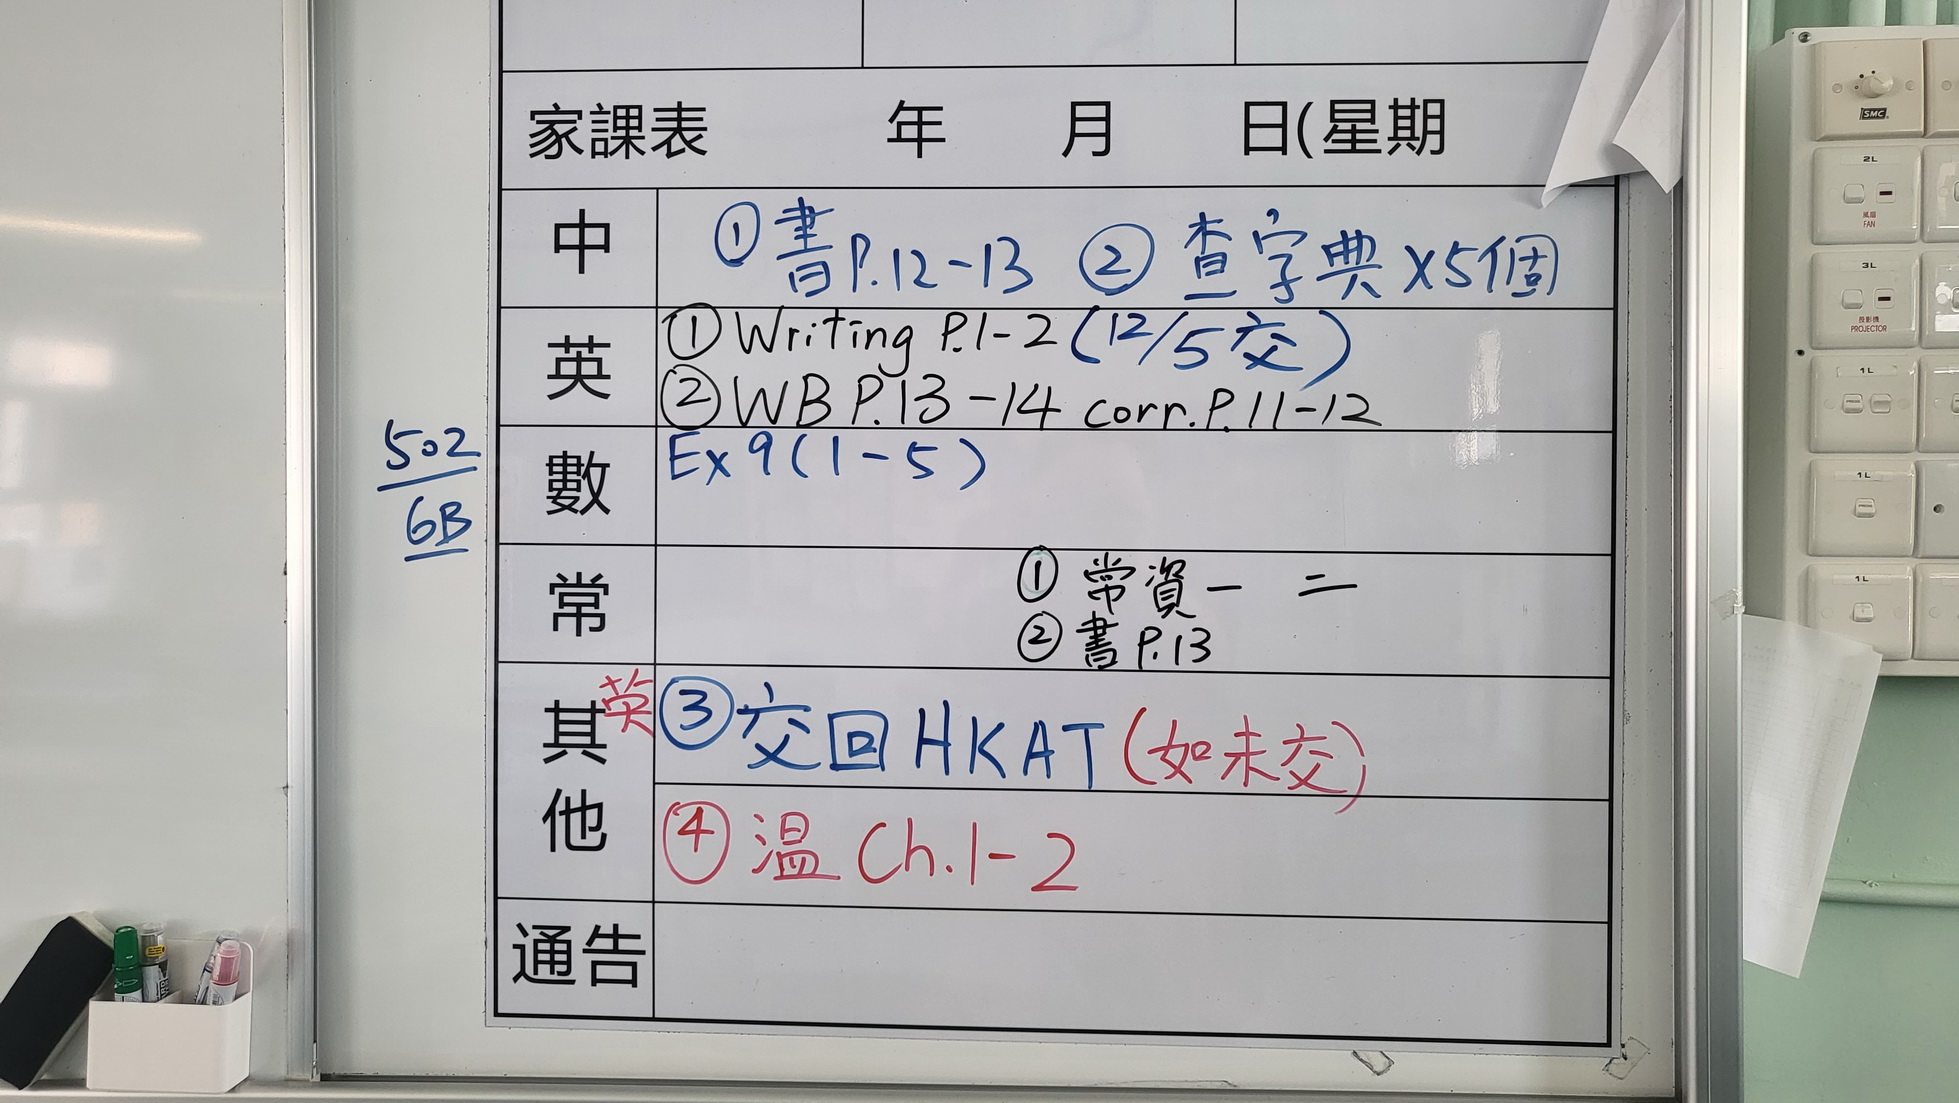 家課表 年 月 日(星期
中 ①書P.12-13 ②查字典x5個
英 ①Writing P.1-2(12/5交)
②WB P.13-14 corr.P.11-12
502
6B
數 Ex 9(1-5)
常 ①常資一 二
②書P.13
其他 英③交回HKAT(如未交)
④溫Ch.1-2
通告
SMC
2L
風扇
FAN
3L
投影機
PROJECTOR
1L
1L
1L